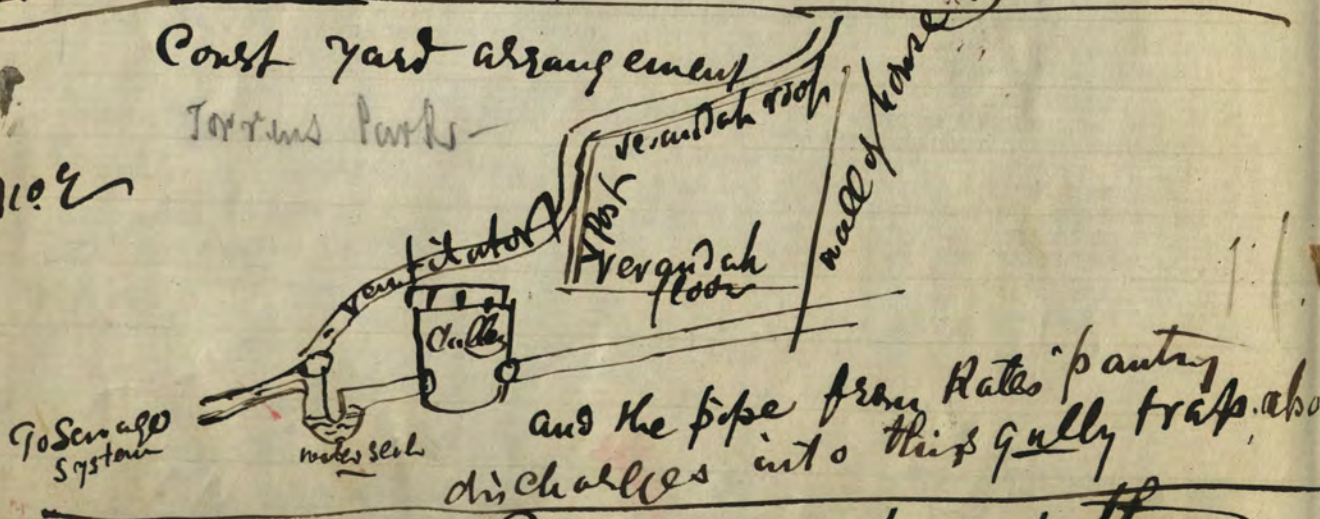 Court Yard arrangement
Torrens Park -
verandah roof
wall of house
Post
verandah
floor
ventilator
Gulley
To Sewage
System
water seal
and the pipe from Kates pantry
discharges into this gully trap. also